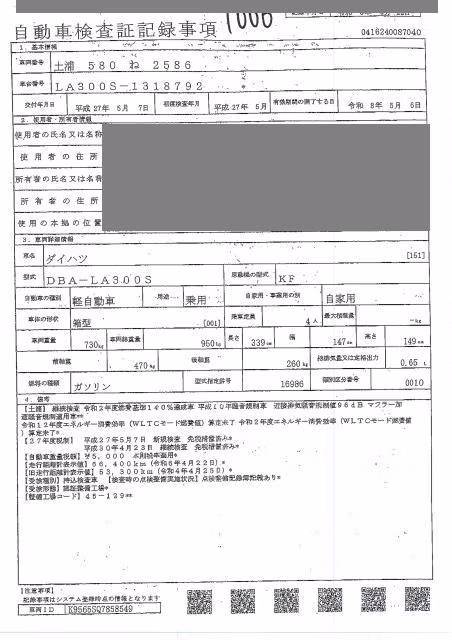 自動車検査証記録事項 1006
0416240087040
1. 基本情報
車両番号 土浦 580 ね 2586
車台番号 LA300S-1318792 *
交付年月日 平成27年 5月 7日 初度検査年月 平成27年 5月 有効期間の満了する日 令和 8年 5月 6日
2. 使用者・所有者情報
使用者の氏名又は名称
使用者の住所
所有者の氏名又は名称
所有者の住所
使用の本拠の位置
3. 車両詳細情報
車名 ダイハツ [151]
型式 DBA-LA300S 原動機の型式 KF
自動車の種別 軽自動車 用途 乗用 自家用・事業用の別 自家用
車体の形状 箱型 [001] 乗車定員 4人 最大積載量 -kg
車両重量 730kg 車両総重量 950kg 長さ 339cm 幅 147cm 高さ 149cm
前軸重 470kg 後軸重 260kg 総排気量又は定格出力 0.65 L
燃料の種類 ガソリン 型式指定番号 16986 類別区分番号 0010
4. 備考
[土浦] 継続検査 令和2年度燃費基準140%達成車 平成10年騒音規制車 近接排気騒音規制値96dB マフラー加
速騒音規制適用車**
令和12年度エネルギー消費効率(WLTCモード燃費値)算定未了 令和2年度エネルギー消費効率(WLTCモード燃費値
)算定未了*
[27年度税制] 平成27年5月7日 新規検査 免税措置済み*
平成30年4月23日 継続検査 免税措置済み*
[自動車重量税額] ¥5,000 本則税率適用*
[走行距離計表示値] 66,400km (令和6年4月22日)*
[旧走行距離計表示値] 53,300km (令和4年4月25日)*
[受検種別] 持込検査車 [検査時の点検整備実施状況] 点検整備記録簿記載あり*
[受検形態] 認証整備工場*
[整備工場コード] 45-129**
[注意事項]
記録事項はシステム登録時点の情報となります
車両ID K9565SQ7858549